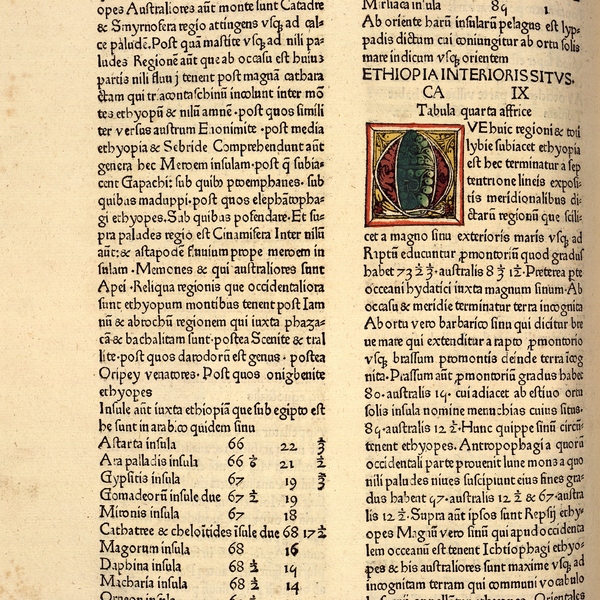 opes Australiores aūt monte sunt Catadre
& Smyrnofera regio attingens vsq; ad cal-
ce pàludē.Post quā mastite vsq; ad nili pa-
ludes Regionē aūt que ab occasu est huius
partis nili fluuij tenent post magnā cathara
ctam qui tracontaschinū incolunt inter mō
tes ethyopū & nilū amnē .post quos simili
ter versus austrum Enonimite .post media
ethyopia & Sebride Comprehendunt aūt
genera hec Meroem insulam.post q̄ subia-
cent Gapachi: sub quibꝰ ptoemphanes. sub
quibus maduppi.post quos elephātopha-
gi ethyopes.Sub quibus posendare.Et su-
pra paludes regio est Cinamifera Inter nilū
aūt: & astapodē fluuium prope meroem in
sulam .Memones & qui australiores sunt
Apei .Reliqua regionis que occidentaliora
sunt ethyopum montibus tenent post Iam
nū & abrochū regionem qui iuxta phaza-
cā.& bachalitam sunt.postea Scenite & tral
lite.post quos darodorū est genus . postea
Oripey venatores. Post quos onigbenite
ethyopes
Insule aūt iuxta ethiopiā que sub egipto est
he sunt in arabico quidem sinu
Astarta insula 66 22 ⅔
Ara palladis insula 66 ⅙ 21 ½
Gypsitis insula 67 19 ⅔
Gomadeorū insule due 67 ½ 19
Mironis insula 67 18
Cathatree & cheloītides īsule due 68 17 ½
Magorum insula 68 16
Daphina insula 68 ⅓ 14
Macharia insula 68 ½ 14
insula
Miriaca insula 89 1
Ab oriente harū insularū pelagus est lyp-
padis dictum cui coniungitur ab ortu solis
mare indicum vsq; orientem
ETHIOPIA INTERIORIS SITVS.
CA IX
Tabula quarta affrice
QVE huic regioni & toti
lybie subiacet ethyopia
est hec terminatur a sep
tentrione lineis exposi-
tis meridionalibus di-
ctarū regionū que scili-
cet a magno sinu exterioris maris vsq; ad
Raptū educuntur ꝓmontoriū quod gradus
habet 73 ½ ⅓. australis 8 ⅓ 12. Preterea pte
occeani hydatici iuxta magnum sinum.Ab
occasu & meridie terminatur terra incognita
Ab ortu vero barbarico sinu qui dicitur bre
ue mare qui extenditur a rapto ꝓmontorio
vsq; brassum promontis deinde terra īcog
nita.Prassum aūt ꝓmontoriū gradus habet
80. australis 14. cui adiacet ab estiuo ortu
solis insula nomine menuthias cuius situs.
84. australis 12 ½.Hunc quippe sinū circū-
tenent ethyopes. Antropophagi a quorū
occidentali parte prouenit lune mons a quo
nili paludes niues suscipiunt eius fines gra-
dus habent 47.australis 12 ½ & 67.austra
lis 12 ½.Supra aūt ipsos sunt Repsij ethy-
opes Magnū vero sinū qui apud occidenta
lem occeanū est tenent Ichtiophagi ethyo-
pes & his australiores sunt maxime vsq; ad
incognitam terram qui communi vocabulo
ethyopes Orientales